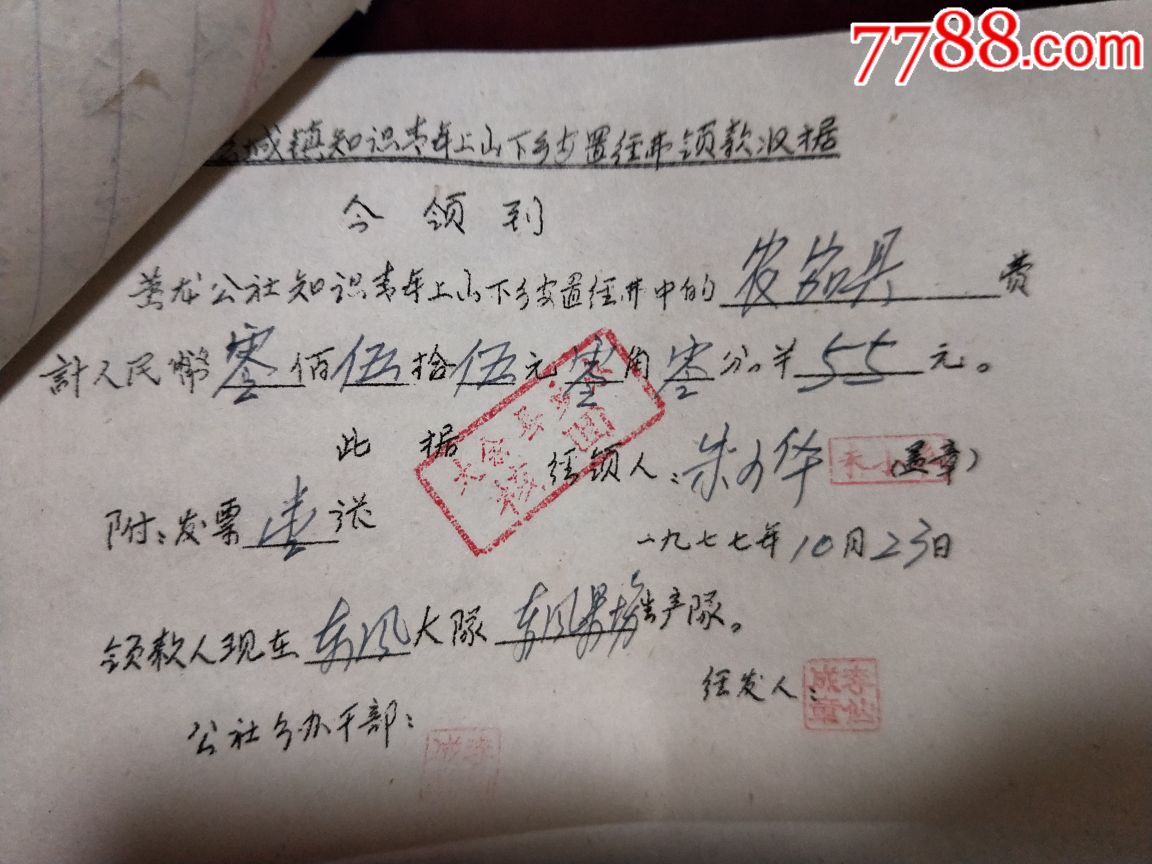 7788.com
城镇知识青年上山下乡安置经费领款收据
今领到
公社知识青年上山下乡安置经费中的农家具费
計人民幣零佰伍拾伍元零角零分¥55元。
此据
经领人:朱小华(盖章)
附:发票壹张
一九七七年10月23日
领款人现在东风大隊东风果场生产隊。
经发人:
公社乡办干部: